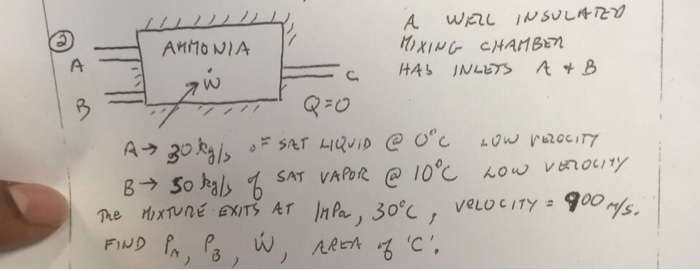 A WELL INSULATED
MIXING CHAMBER
HAS INLETS A & B
②
AMMONIA
Ẇ
A
B
C
Q=0
A→ 30 kg/s OF SAT LIQUID @ 0°C LOW VELOCITY
B→ 50 kg/s of SAT VAPOR @ 10°C LOW VELOCITY
The MIXTURE EXITS AT 1MPa, 30°C, VELOCITY = 900 m/s.
FIND PA, PB, Ẇ, AREA of 'C'.